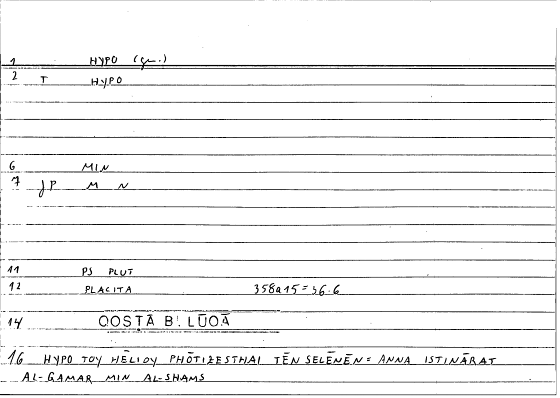 1 HYPO (gr.)
2 T HYPO
6 MIN
7 JP M N
11 PS PLUT
12 PLACITA 358a15=36.6
14 QOSṬĀ B. LŪQĀ
16 HYPO TOY HĒLIOY PHŌTIZESTHAI TĒN SELĒNĒN = ANNA ISTINĀRAT
AL-QAMAR MIN AL-SHAMS